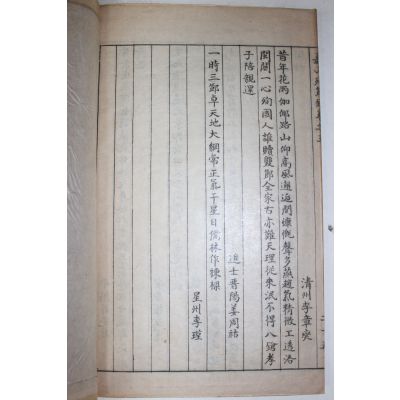 清州李章
昔年花雨伽倻路山仰高風邂逅間慷慨聲多燕趙氣精微工透洛
閩關一心殉國人誰贖雙節全家古亦難天理從來泯不得八孝
子陪親還
進士晋陽姜周祜
一時三鄭卓天地大綱常正氣干星日儒林作棟樑
星州李瑾